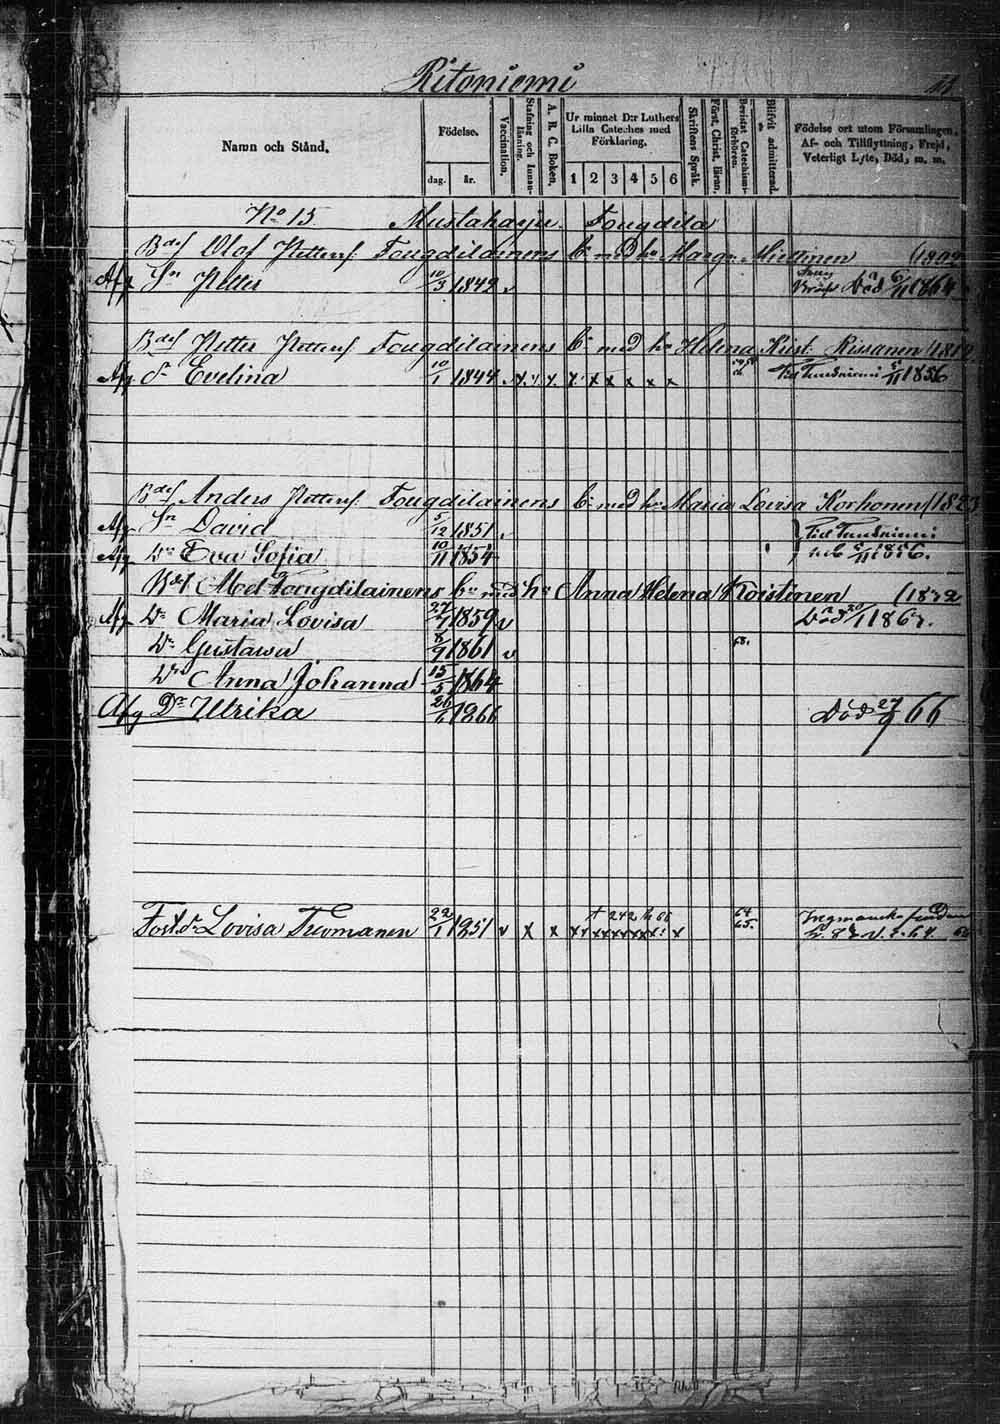 Ritoniemi
11
Namn och Stånd.
Födelse.
dag. år.
Vaccination.
Stafning och Innan-läsning.
A. B. C. Boken.
Ur minnet D:r Luthers
Lilla Cateches med
Förklaring.
1 2 3 4 5 6
Skriftens Språk.
Först. Christ. läran.
Bevistat Catechismi-förhören.
Blifvit admitterad.
Födelse ort utom Församlingen,
Af- och Tillflyttning, Frejd,
Veterligt Lyte, Död, m. m.
No 15 Mustahaju Fougdila
Bdes Olof Pettersf. Fougdilainens bn med hu Margr. Miettinen (1802
Afg Sn Petter 10/3 1849 v Död 6/11 1864
Bdes Petter Pettersf. Fougdilainens bn med hu Helena Krist. Rissanen (1819
Afg Dr Evelina 10/1 1844 x x x x x x x Till Tuusniemi 1856
Bdes Anders Pettersf. Fougdilainens bn med hu Maria Lovisa Korhonen (1823
Afg Sn David 5/12 1851 Till Tuusniemi
Afg Dr Eva Sofia 10/11 1854 1856.
Bdes Abel Fougdilainens bn med hu Anna Helena Koistinen (1832
Afg Dr Maria Lovisa 27/7 1859 v Död 20/1 1867.
Dr Gustava 8/9 1861 v 68.
Dr Anna Johanna 15/5 1864
Afg Dr Ulrika 26/6 1866 Död 27/9 66
† 242 h 66
Fost.dr Lovisa Tuomanen 22/1 1851 v x x x x x x x x x x 64 65.